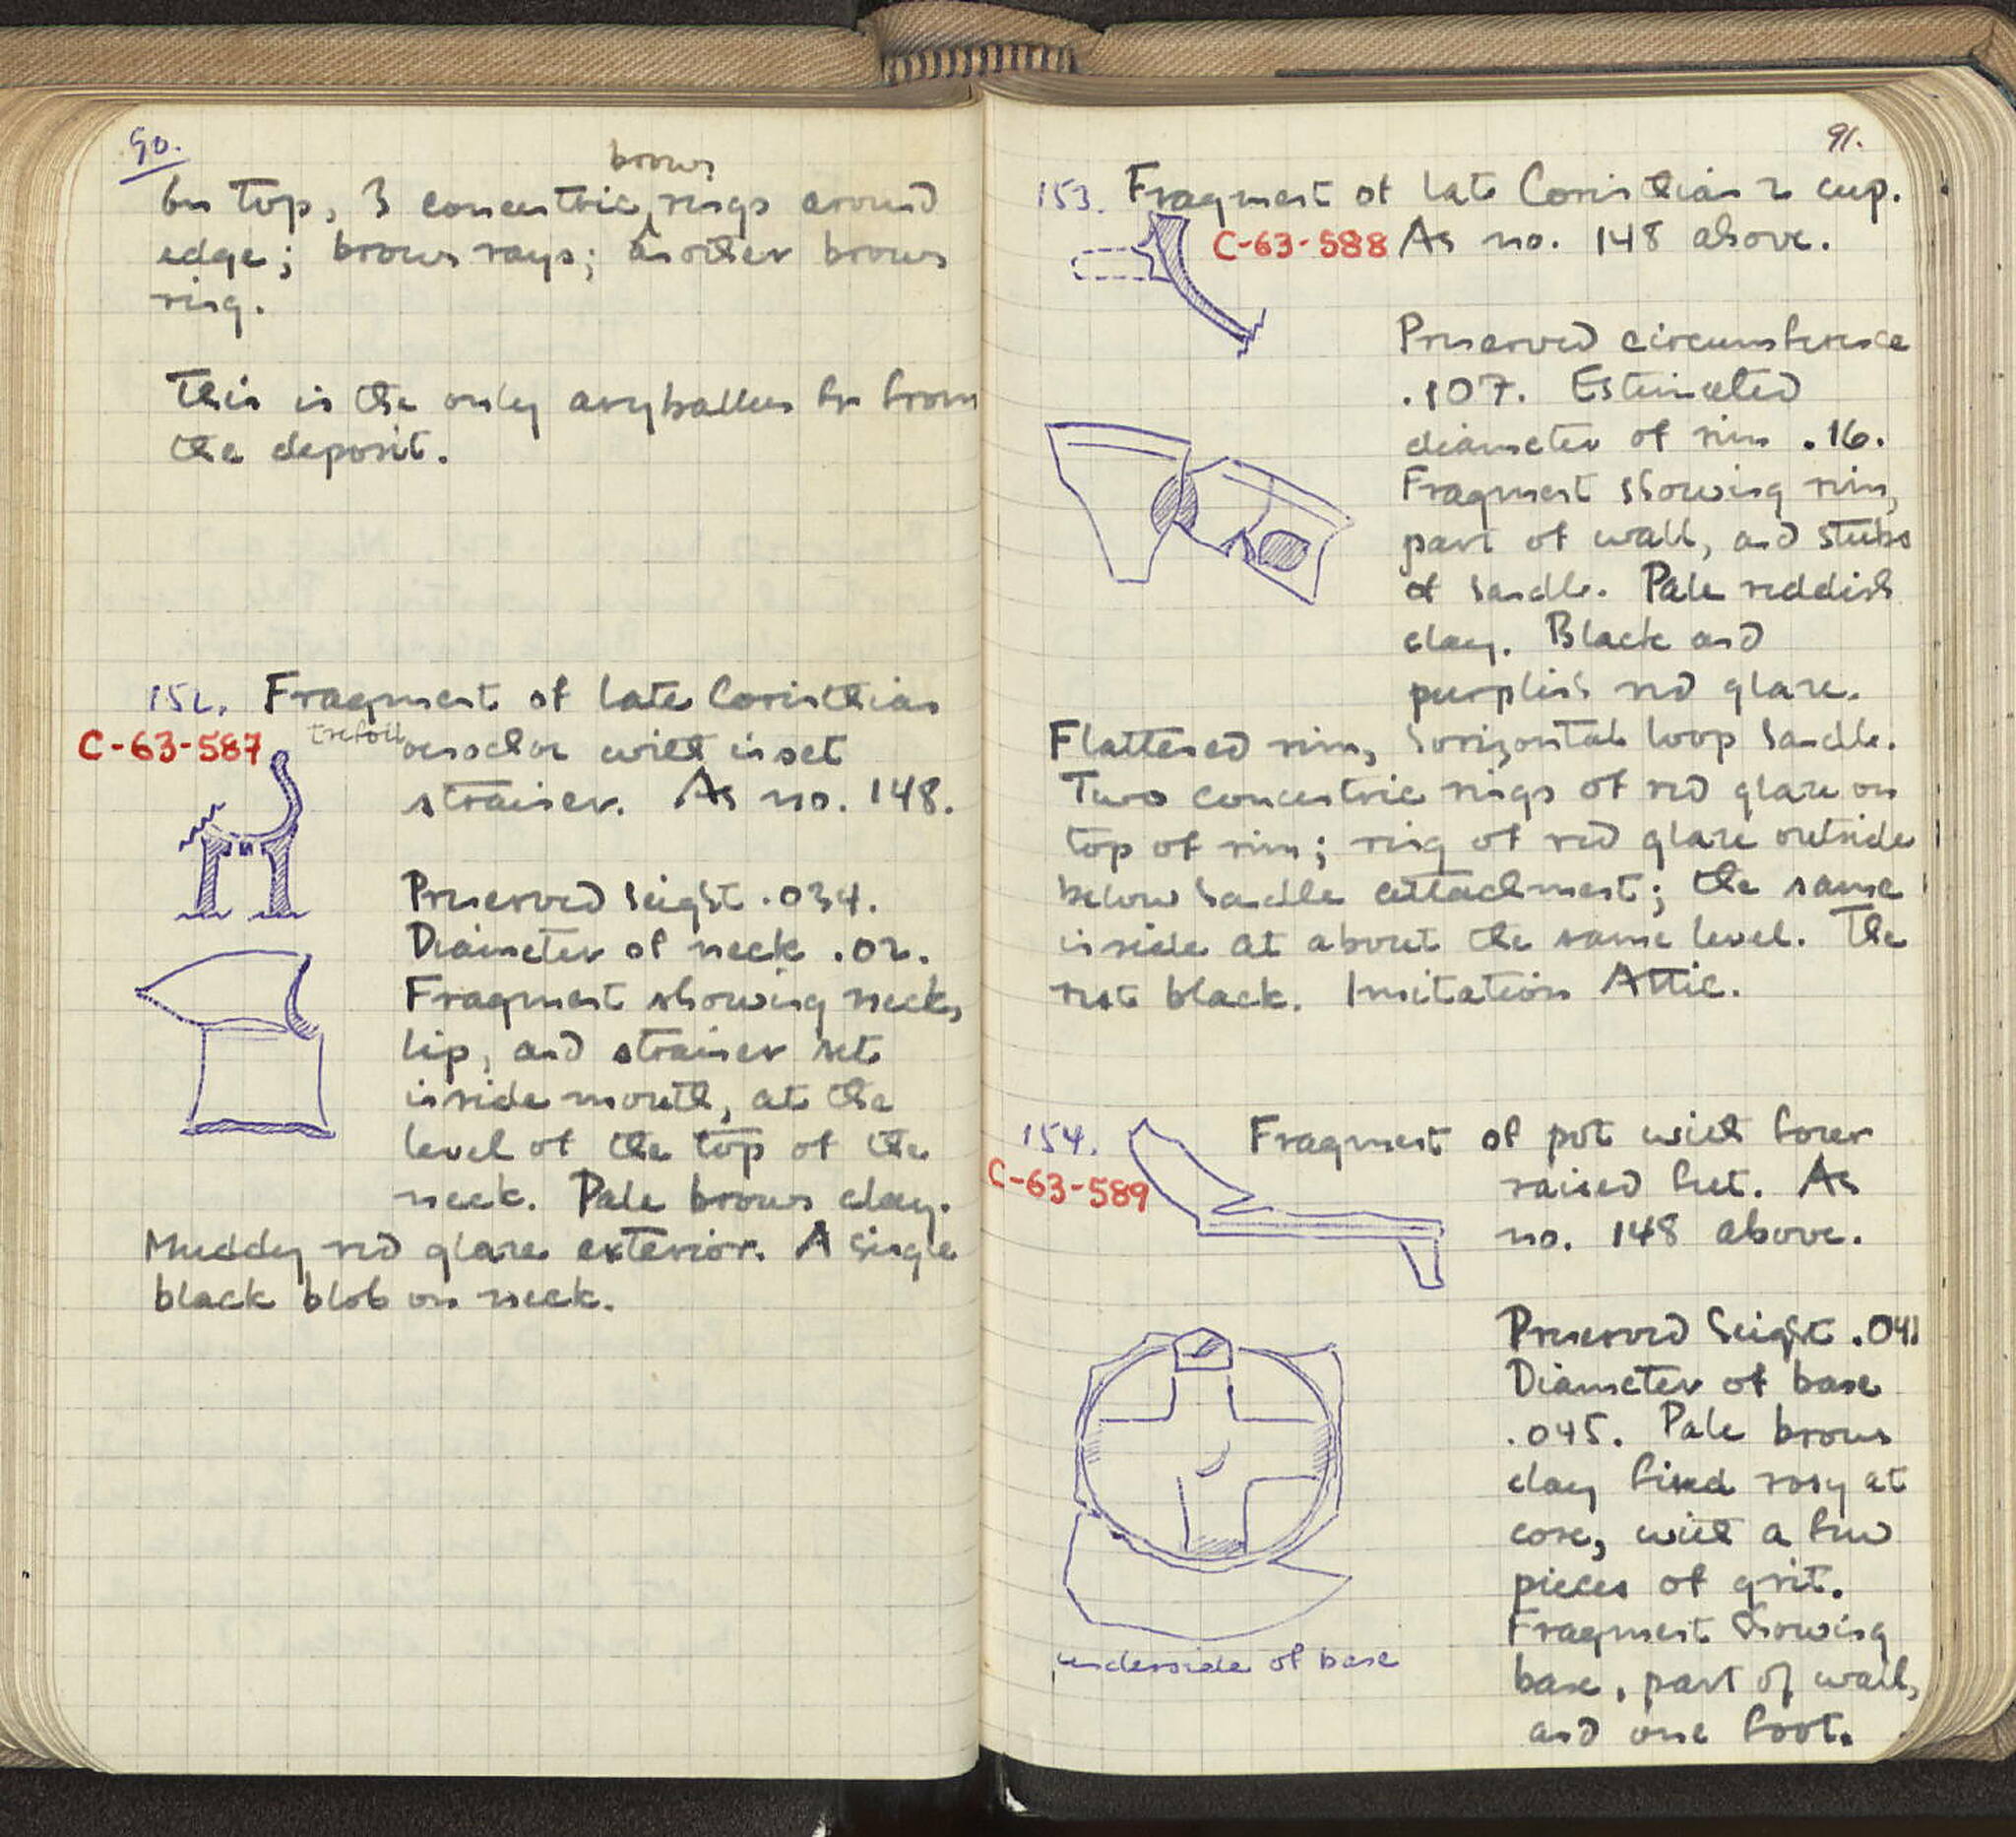 90.
brown
On top, 3 concentric rings around
edge; brown rays; another brown
ring.
This is the only aryballos from
the deposit.
152. Fragment of late Corinthian
C-63-587 trefoil oinochoe with inset
strainer. As no. 148.
Preserved height .034.
Diameter of neck .02.
Fragment showing neck,
lip, and strainer set
inside mouth, at the
level of the top of the
neck. Pale brown clay.
Muddy red glaze exterior. A single
black blob on neck.
91.
153. Fragment of late Corinthian 2 cup.
C-63-588 As no. 148 above.
Preserved circumference
.107. Estimated
diameter of rim .16.
Fragment showing rim,
part of wall, and stubs
of handle. Pale reddish
clay. Black and
purplish red glaze.
Flattened rim, horizontal loop handle.
Two concentric rings of red glaze on
top of rim; ring of red glaze outside
below handle attachment; the same
inside at about the same level. The
rest black. Imitation Attic.
154. Fragment of pot with lower
C-63-589 raised feet. As
no. 148 above.
Preserved height .041
Diameter of base
.045. Pale brown
clay fired rosy at
core, with a few
pieces of grit.
Fragment showing
base, part of wall,
and one foot.
underside of base